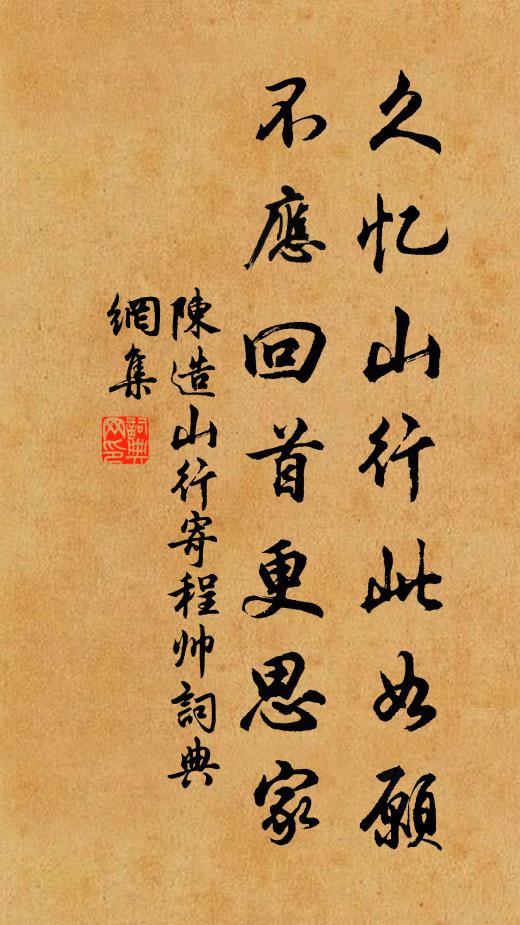 久忆山行此如願
不應回首更思家
陳造山行寄程帅詞典
網集
詞典
网印